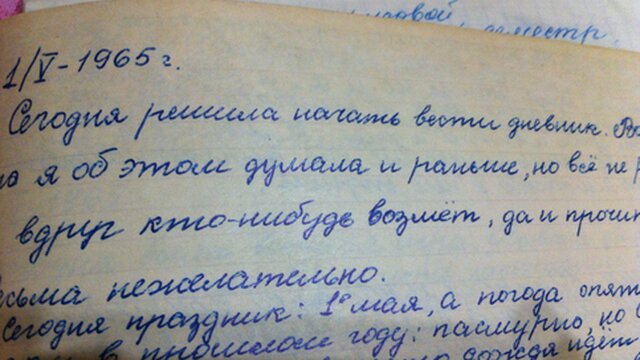 семестр
1/V-1965 г.
Сегодня решила начать вести дневник.
я об этом думала и раньше, но всё не
вдруг кто-нибудь возмёт, да и
нежелательно.
Сегодня праздник: 1ое мая, а погода
в прошлом году: пасмурно, но
дождя идёт